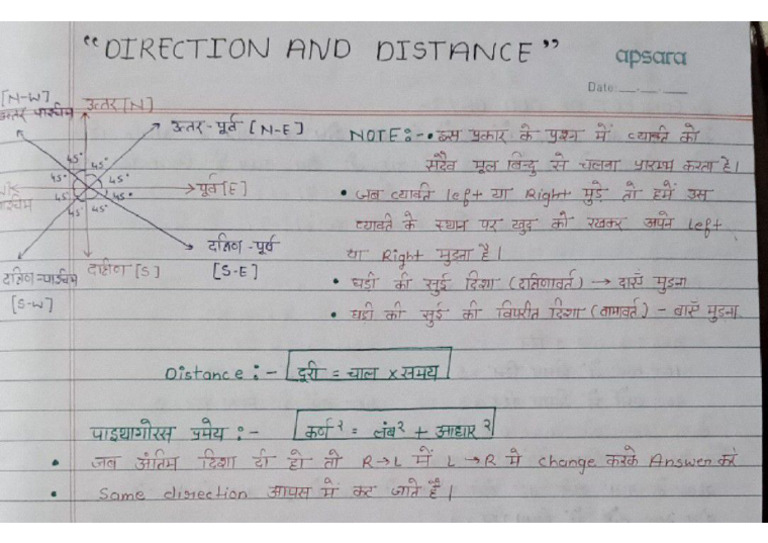 "DIRECTION AND DISTANCE"
apsara
Date:
[N-W]
उत्तर [N]
उत्तर-पूर्व [N-E]
45° 45°
45° 45°
45° 45°
45° 45°
→पूर्व[E]
दक्षिण-पूर्व
[S-E]
दक्षिण [S]
दक्षिण-पश्चिम
[S-W]
NOTE:-• इस प्रकार के प्रश्न में व्यक्ति को
सदैव मूल बिन्दु से चलना प्रारम्भ करता है।
• जब व्यक्ति left या Right मुड़े तो हमें उस
व्यक्ति के स्थान पर खुद को रखकर अपने left
या Right मुड़ना है।
• घड़ी की सुई दिशा (दक्षिणावर्त) → दाएँ मुड़ना
• घड़ी की सुई की विपरीत दिशा (वामावर्त) - बाएँ मुड़ना
Distance :- दूरी = चाल × समय
पाइथागोरस प्रमेय :- कर्ण² = लंब² + आधार²
• जब अंतिम दिशा दी हो तो R→L में L→R मे change करके Answer करें
• Same direction आपस में कट जाते है।